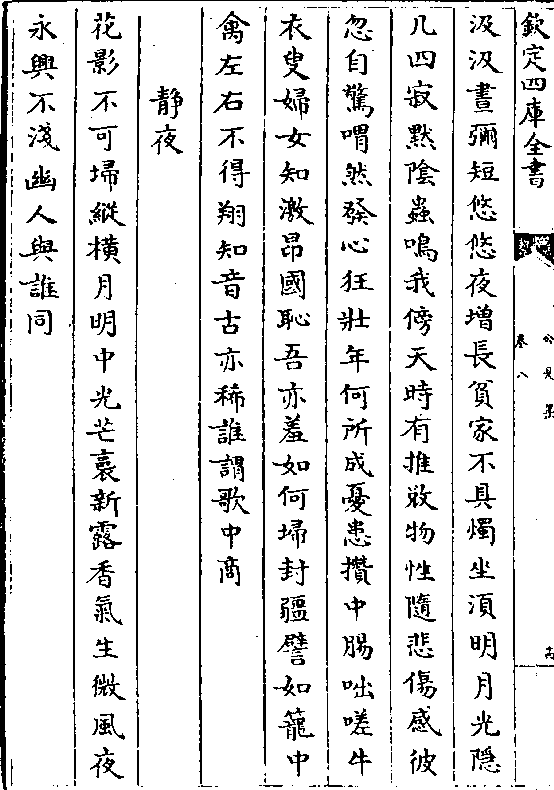 欽定四庫全書
卷八
汲汲晝彌短悠悠夜增長貧家不具燭坐湏明月光隠
几四寂黙陰蟲鳴我傍天時有推敚物性隨悲傷感彼
忽自驚喟然發心狂壯年何所成憂患攢中腸咄嗟牛
衣叟婦女知激昂國恥吾亦羞如何埽封疆譬如籠中
禽左右不得翔知音古亦稀誰謂歌中商
靜夜
花影不可埽縱橫月明中光芒裛新露香氣生微風夜
永興不淺幽人與誰同